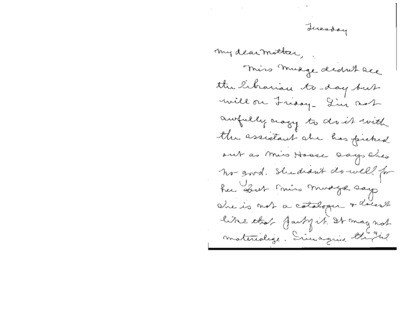 Tuesday
My dear Mother,
Miss Mudge didn't see
the librarian to-day but
will on Friday. I'm not
awfully crazy to do it with
the assistant she has picked
out as Miss Hoose says she's
no good. She didn't do well for
her but Miss Mudge says
she is not a cataloger & doesn't
like that part of it. It may not
materialize. I imagine the